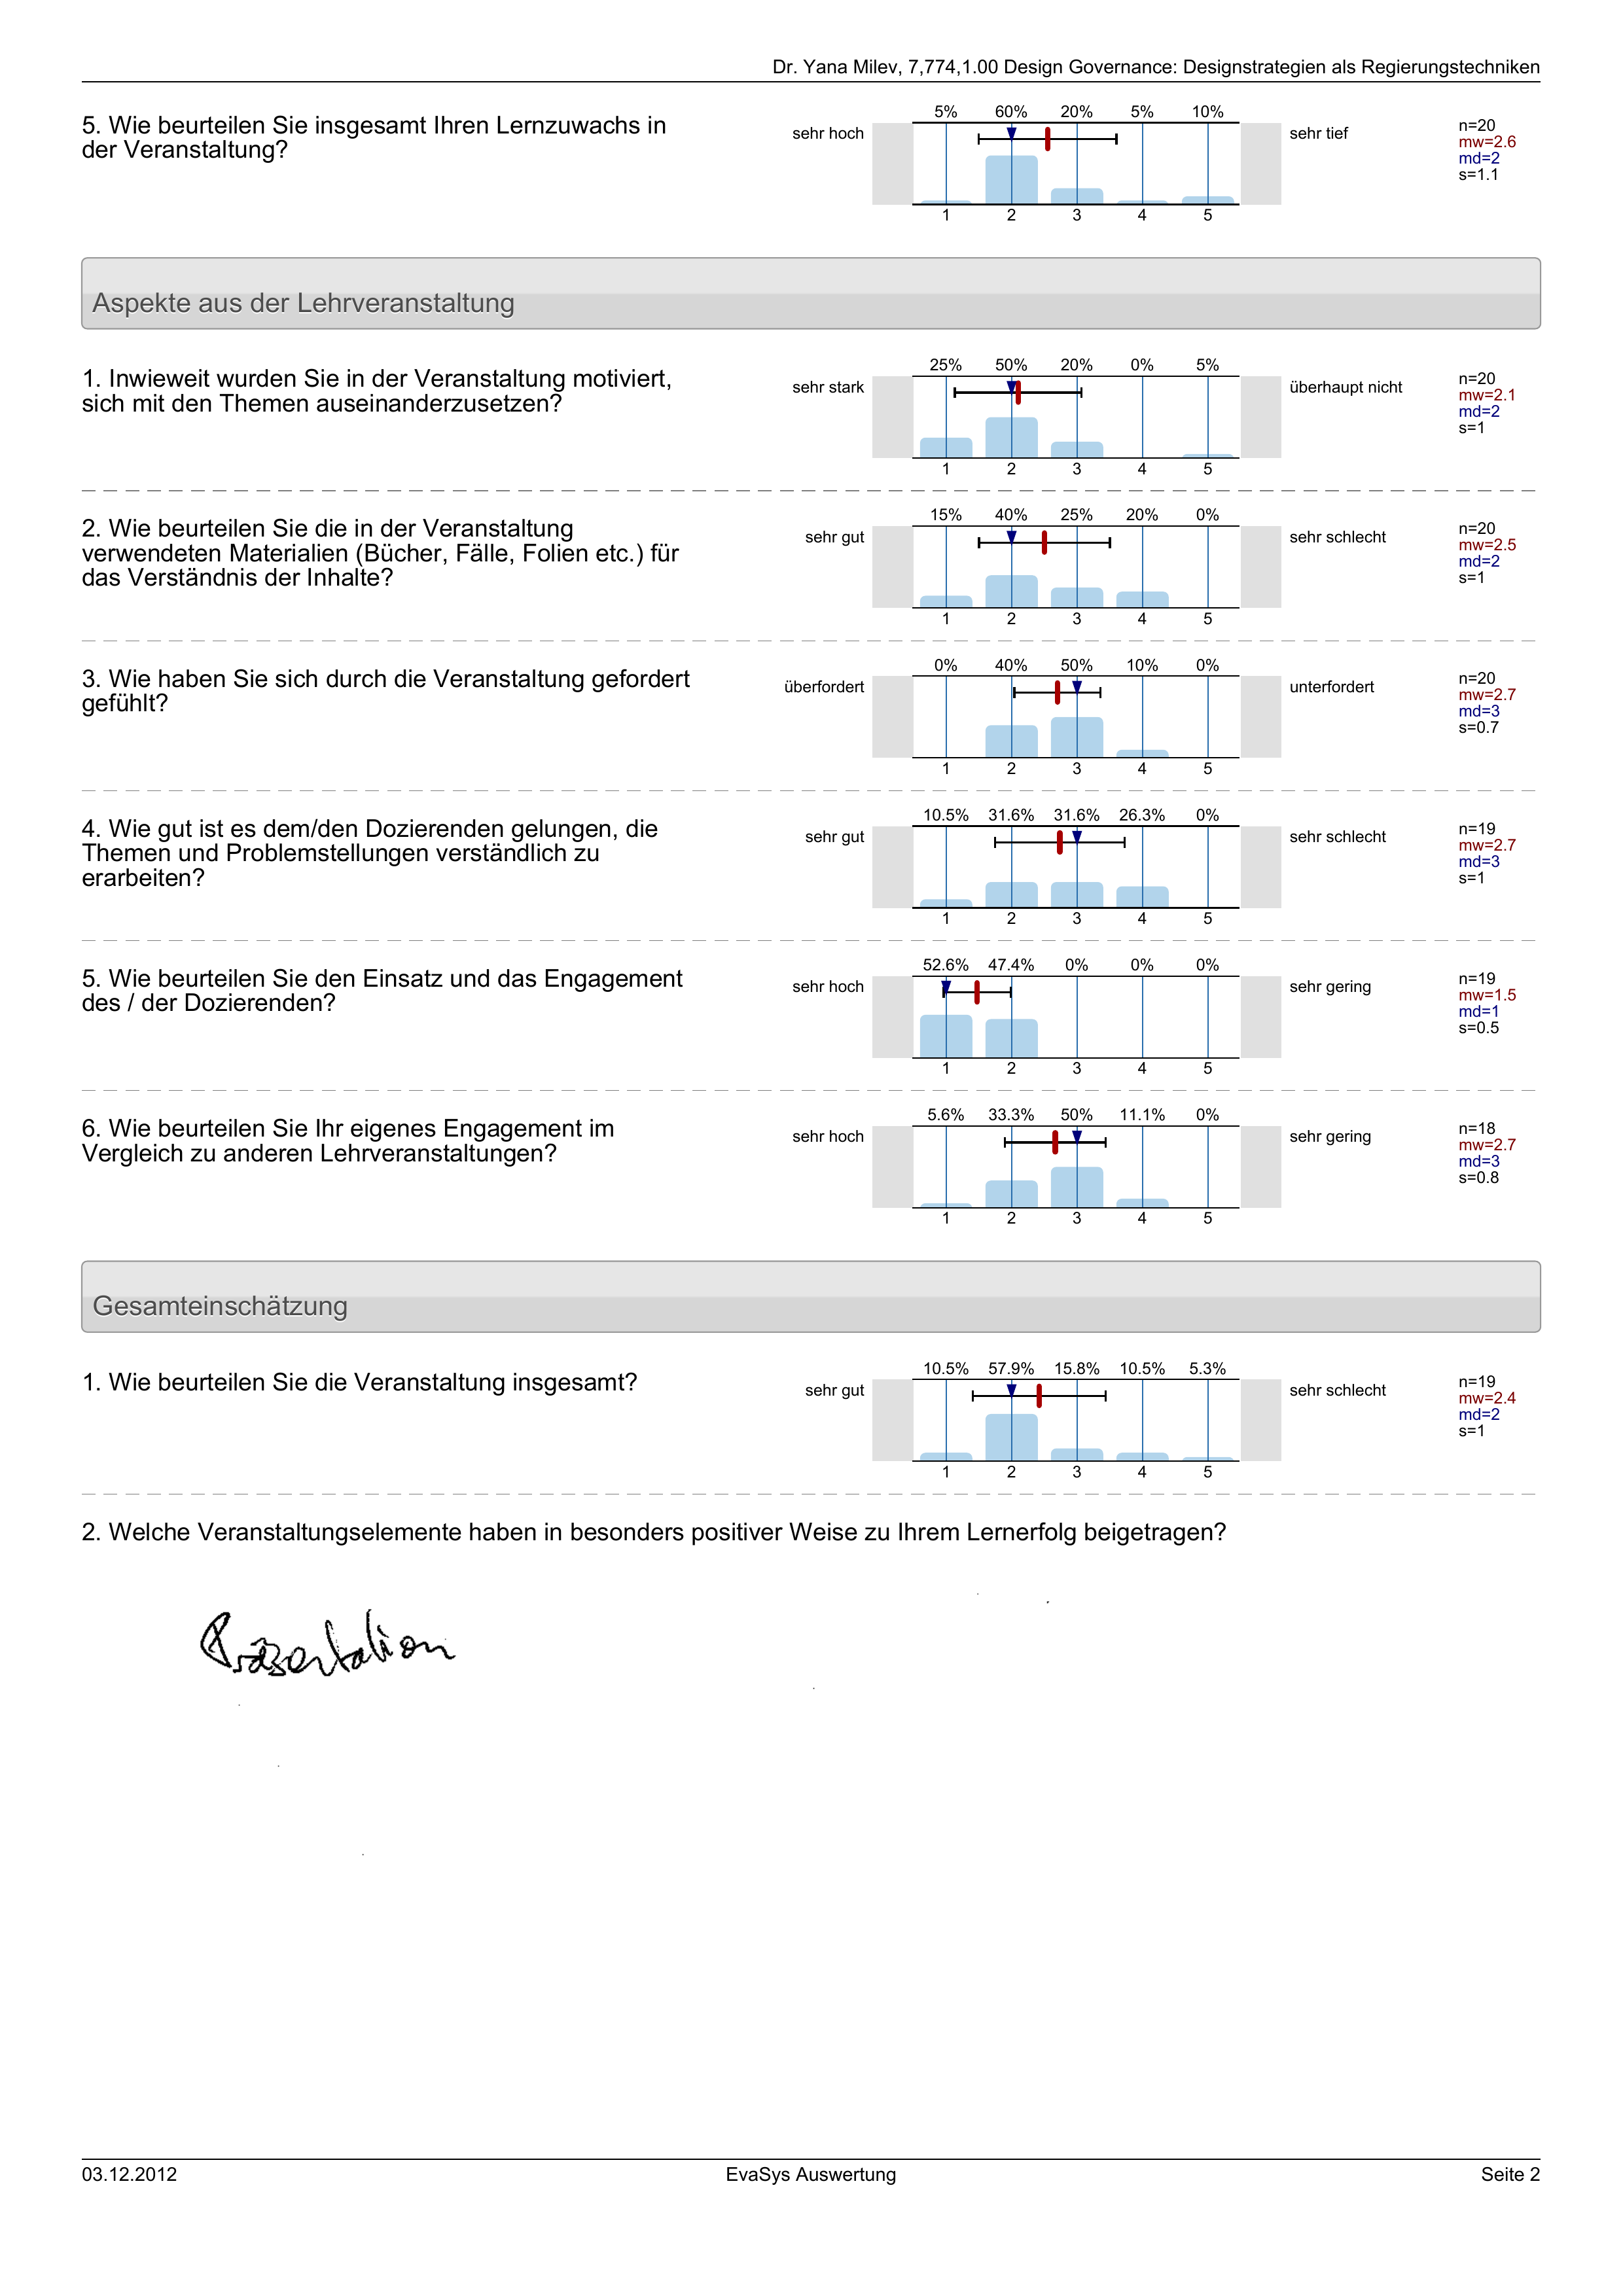 Dr. Yana Milev, 7,774,1.00 Design Governance: Designstrategien als Regierungstechniken
5. Wie beurteilen Sie insgesamt Ihren Lernzuwachs in
der Veranstaltung?
sehr hoch
5% 60% 20% 5% 10%
1 2 3 4 5
sehr tief
n=20
mw=2.6
md=2
s=1.1
Aspekte aus der Lehrveranstaltung
1. Inwieweit wurden Sie in der Veranstaltung motiviert,
sich mit den Themen auseinanderzusetzen?
sehr stark
25% 50% 20% 0% 5%
1 2 3 4 5
überhaupt nicht
n=20
mw=2.1
md=2
s=1
2. Wie beurteilen Sie die in der Veranstaltung
verwendeten Materialien (Bücher, Fälle, Folien etc.) für
das Verständnis der Inhalte?
sehr gut
15% 40% 25% 20% 0%
1 2 3 4 5
sehr schlecht
n=20
mw=2.5
md=2
s=1
3. Wie haben Sie sich durch die Veranstaltung gefordert
gefühlt?
überfordert
0% 40% 50% 10% 0%
1 2 3 4 5
unterfordert
n=20
mw=2.7
md=3
s=0.7
4. Wie gut ist es dem/den Dozierenden gelungen, die
Themen und Problemstellungen verständlich zu
erarbeiten?
sehr gut
10.5% 31.6% 31.6% 26.3% 0%
1 2 3 4 5
sehr schlecht
n=19
mw=2.7
md=3
s=1
5. Wie beurteilen Sie den Einsatz und das Engagement
des / der Dozierenden?
sehr hoch
52.6% 47.4% 0% 0% 0%
1 2 3 4 5
sehr gering
n=19
mw=1.5
md=1
s=0.5
6. Wie beurteilen Sie Ihr eigenes Engagement im
Vergleich zu anderen Lehrveranstaltungen?
sehr hoch
5.6% 33.3% 50% 11.1% 0%
1 2 3 4 5
sehr gering
n=18
mw=2.7
md=3
s=0.8
Gesamteinschätzung
1. Wie beurteilen Sie die Veranstaltung insgesamt?
sehr gut
10.5% 57.9% 15.8% 10.5% 5.3%
1 2 3 4 5
sehr schlecht
n=19
mw=2.4
md=2
s=1
2. Welche Veranstaltungselemente haben in besonders positiver Weise zu Ihrem Lernerfolg beigetragen?
Präsentation
03.12.2012 EvaSys Auswertung Seite 2